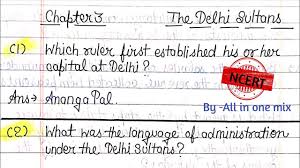 Chapter 3 The Delhi Sultons
Q1) Which ruler first established his or her
capital at Delhi?
Ans → Ananga Pal.
NCERT
By -All in one mix
Q2) What was the language of administration
under the Delhi Sultons?